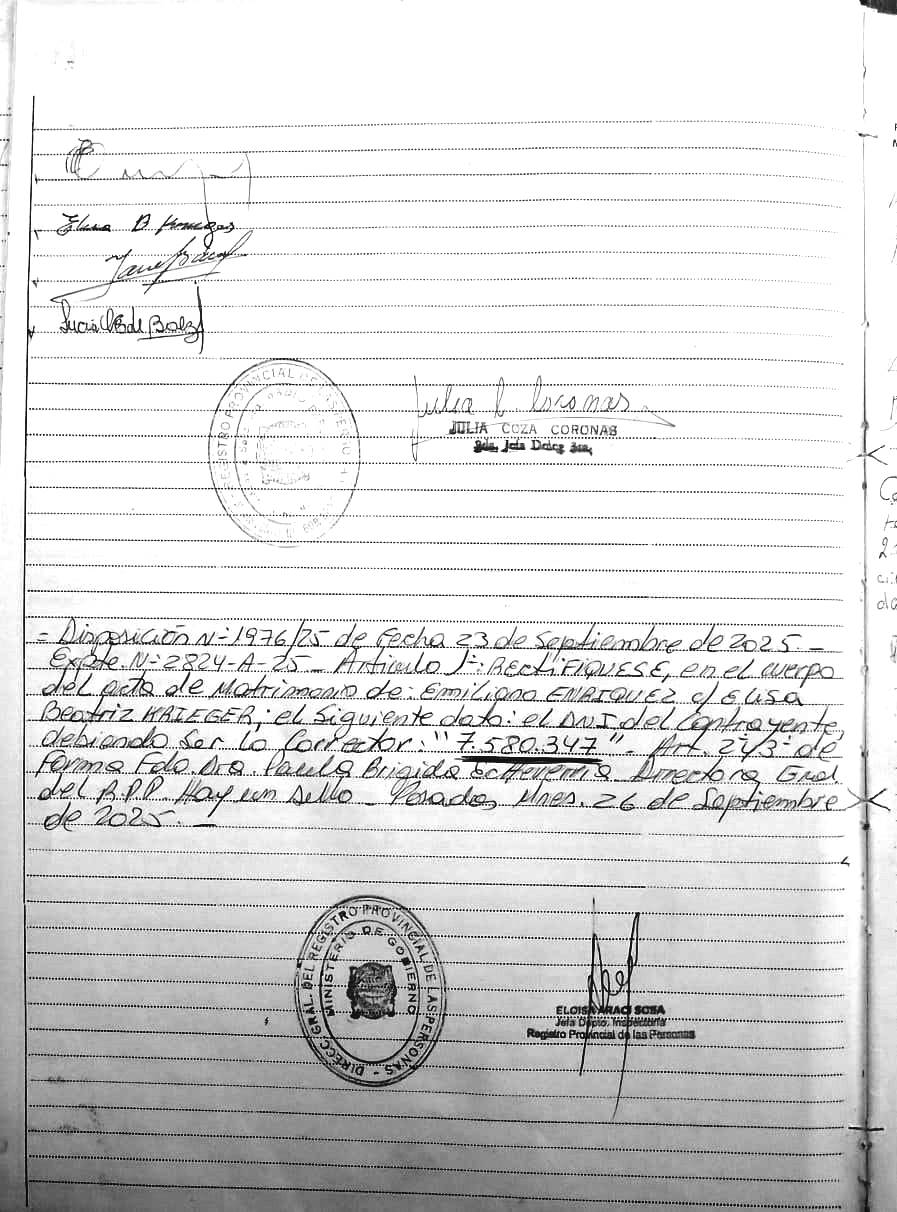 Elisa B Krieger
Lucia
JULIA COZA CORONAS
Julia C. Coronas
REGISTRO PROVINCIAL DE LAS PERSONAS
= Disposición N=1976/25 de Fecha 23 de Septiembre de 2025.-
Expte N=2824-A-25- Artículo 1º: RECTIFIQUESE, en el cuerpo
del acta de Matrimonio de: Emiliano ENRIQUEZ c/ Elisa
Beatriz KRIEGER; el siguiente dato: el DNI. del Contrayente,
debiendo ser lo Correcto: "7.580.347"- Art. 2º/3º de
Forma Fdo. Dra. Paula Brigida Echeverria Directora Gral
del R.P.P. Hay un Sello - Posadas, Mnes. 26 de Septiembre
de 2025.-
DIRECC. GRAL. DEL REGISTRO PROVINCIAL DE LAS PERSONAS -
MINISTERIO DE GOBIERNO
ELOISA ARACI SOSA
Jefa Dpto. Inspectoría
Registro Provincial de las Personas